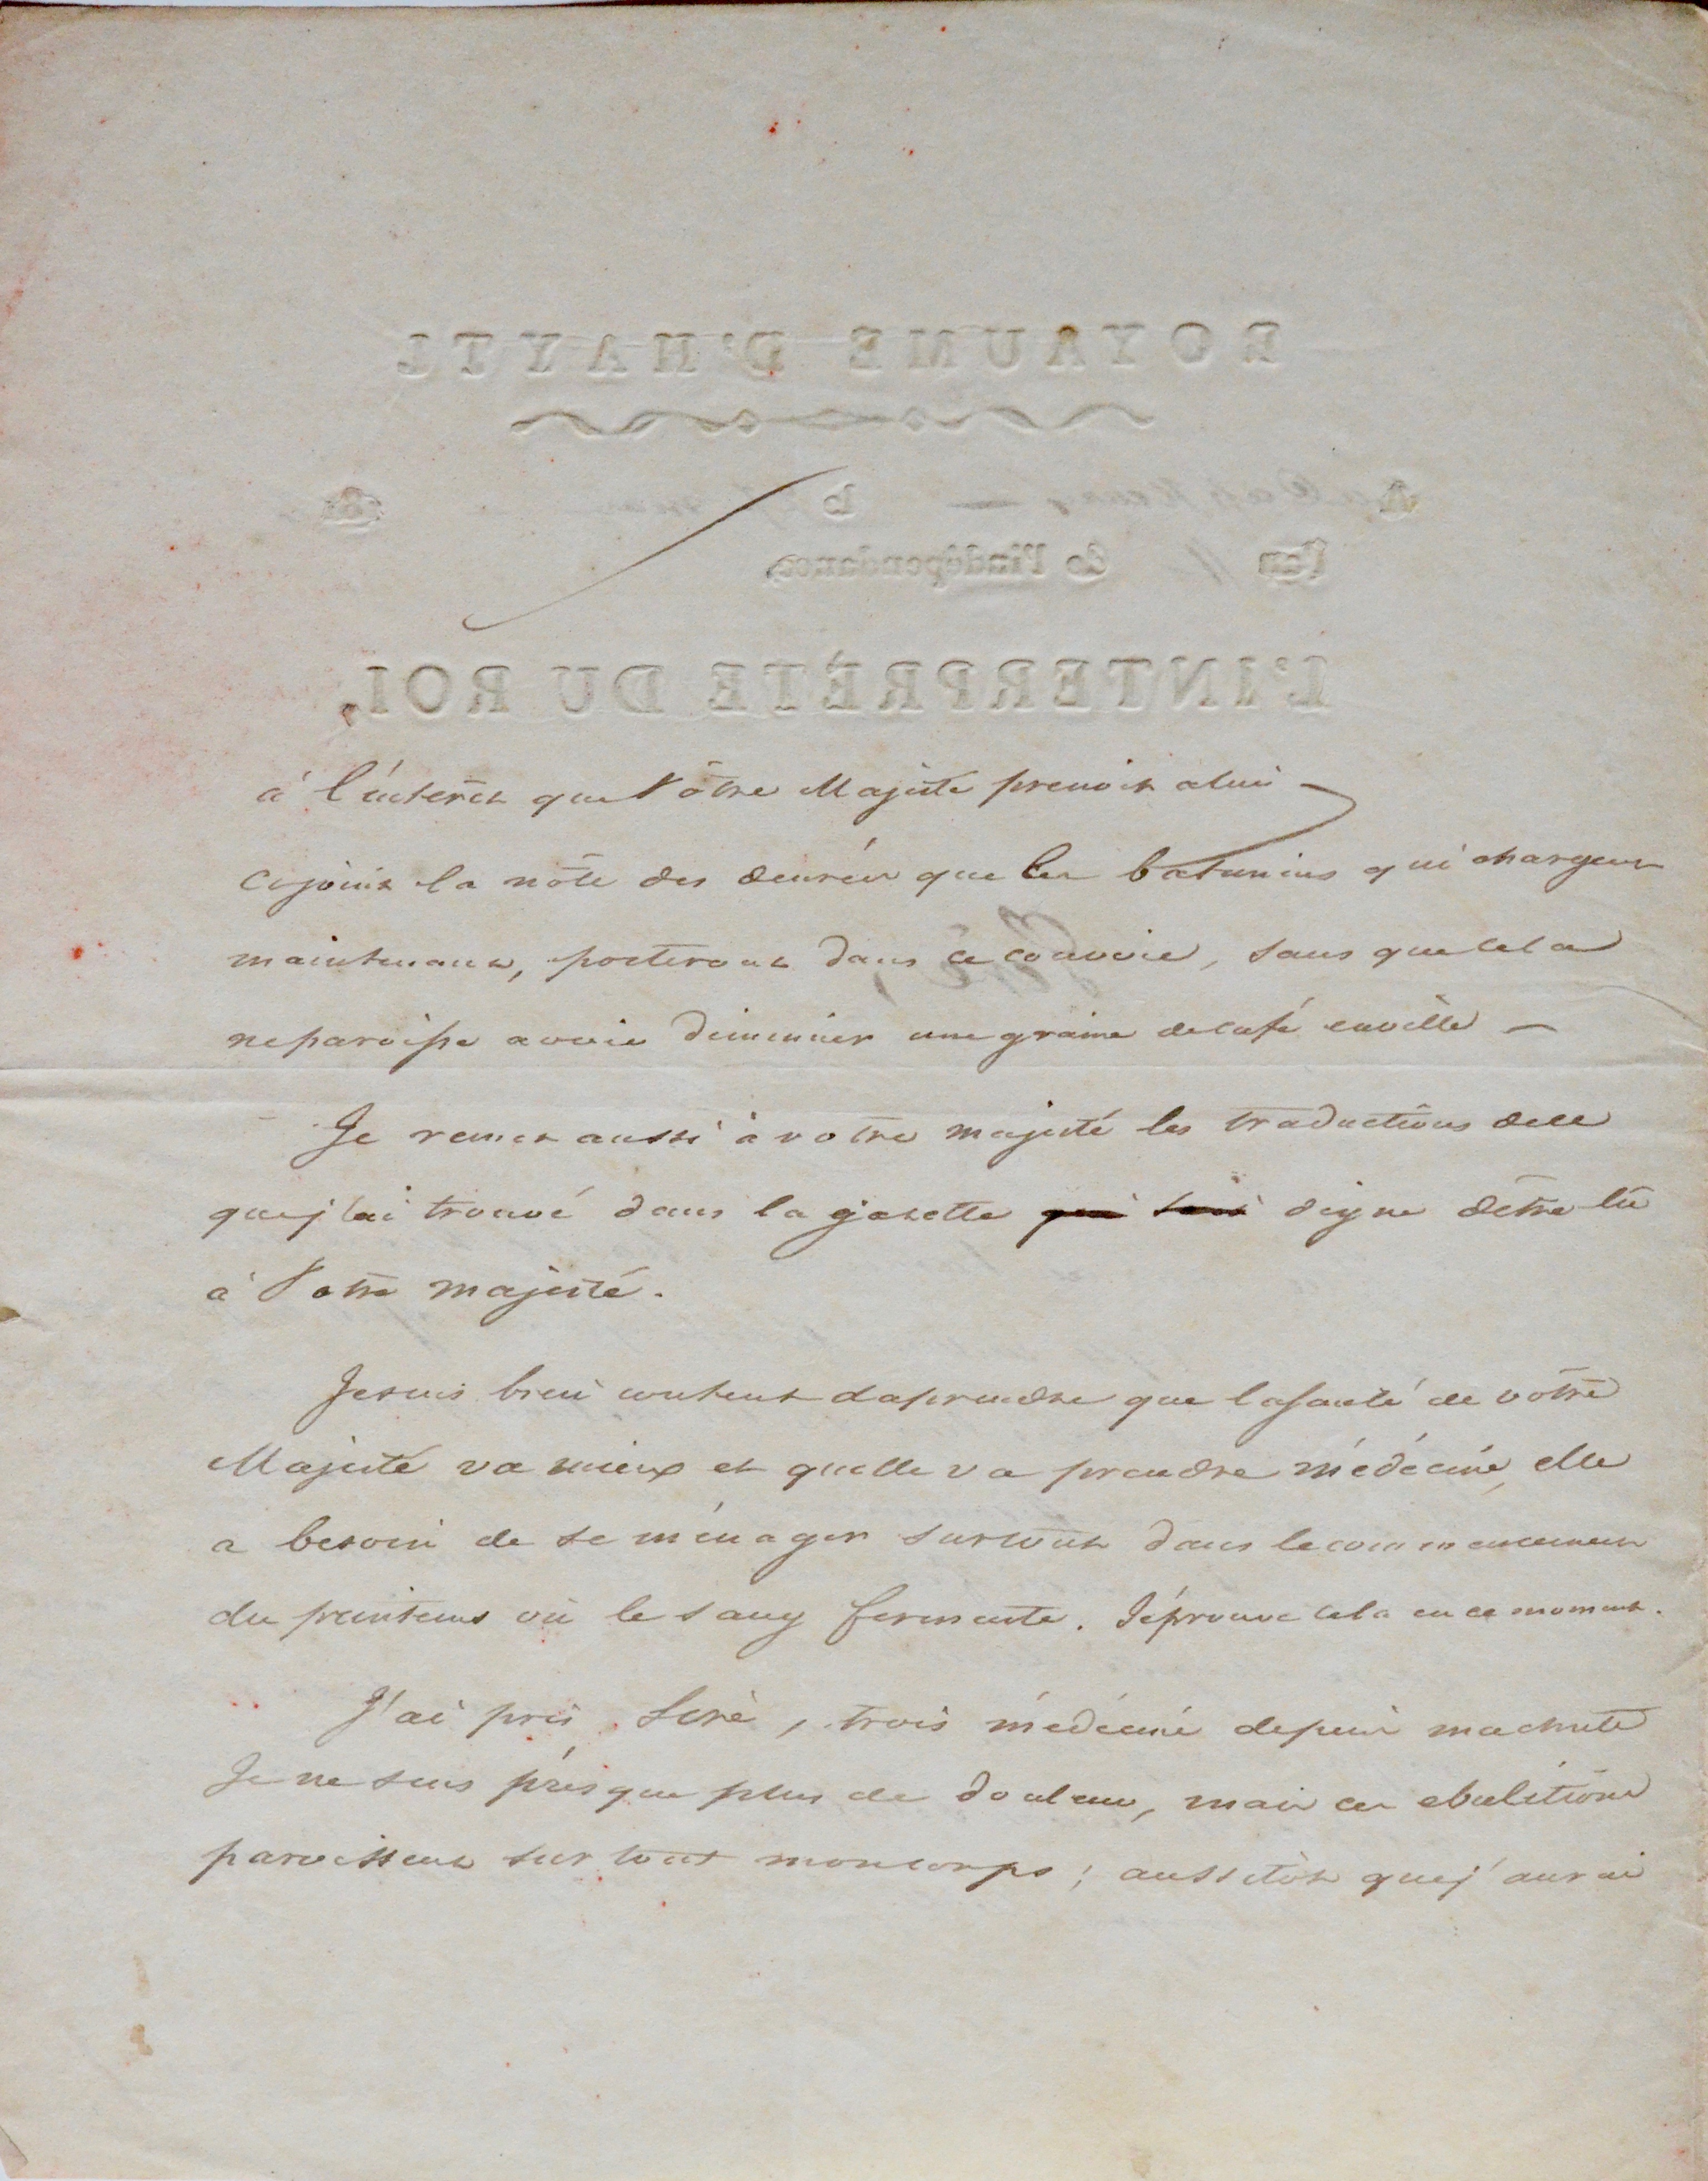 ROYAUME D'HAYTI
A le
l'an de l'indépendance
L'INTERPRÈTE DU ROI,
à l'interêt que Vôtre Majesté prenoit a lui
Cy joint la nôte des denrées que les batimins qui chargent
maintenant, porteront dans ce convoie, sans que cela
ne paroisse avoir diminuer une graine de café en ville —
Je remet aussi à votre majesté les traductions de ce
que j'ai trouvé dans la gazette qui soit digne d'être lû
à Votre majesté.
Je suis bien content daprendre que la santé de vôtre
Majesté va mieux et quelle va prendre médécine, elle
a besoin de se ménager surtout dans le commencement
du printems où le sang fermente. J'éprouve cela en ce moment.
J'ai pris, Sire, trois médécine depuis ma chute
Je ne sens présque plus de douleur, mais ces ebulitions
paroissent sur tout mon corps; aussitôt que j'aurai